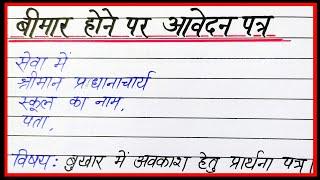 बीमार होने पर आवेदन पत्र
सेवा में
श्रीमान प्रधानाचार्य
स्कूल का नाम,
पता,
विषय: बुखार में अवकाश हेतु प्रार्थना पत्र।